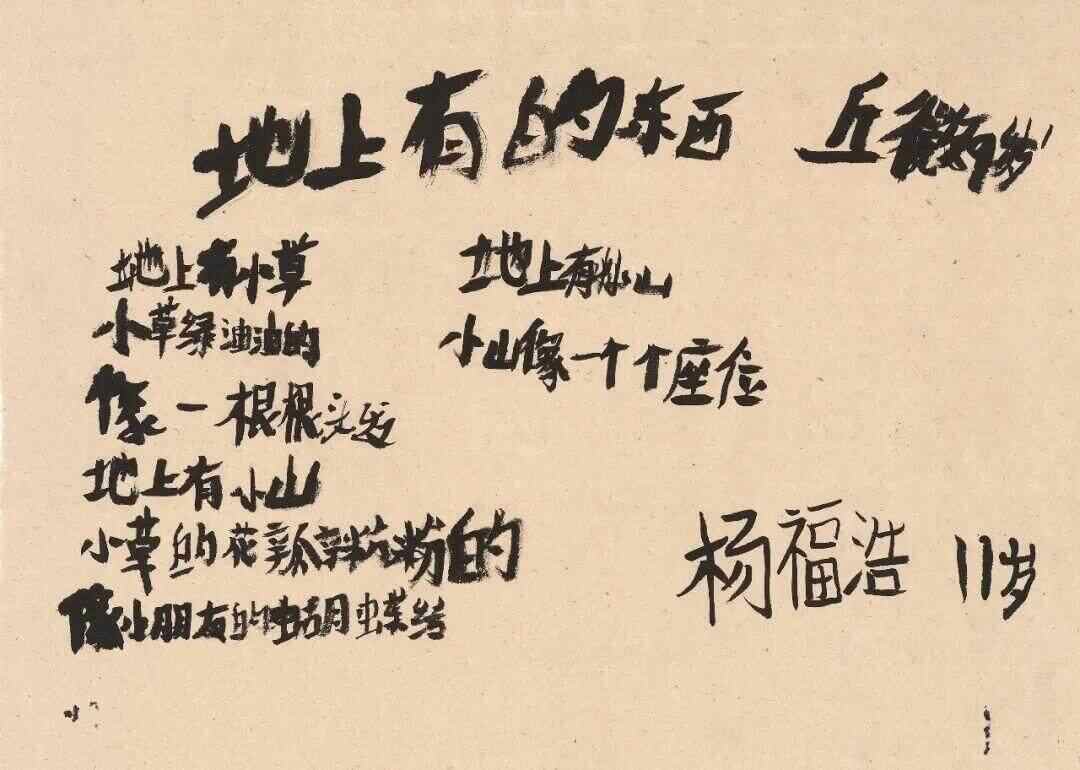 地上有的东西 丘 9岁
地上有小草
小草绿油油的
像一根根头发
地上有小山
小草的花瓣粉粉的
像小朋友的蝴蝶结
地上有小山
小山像一个个座位
杨福浩 11岁